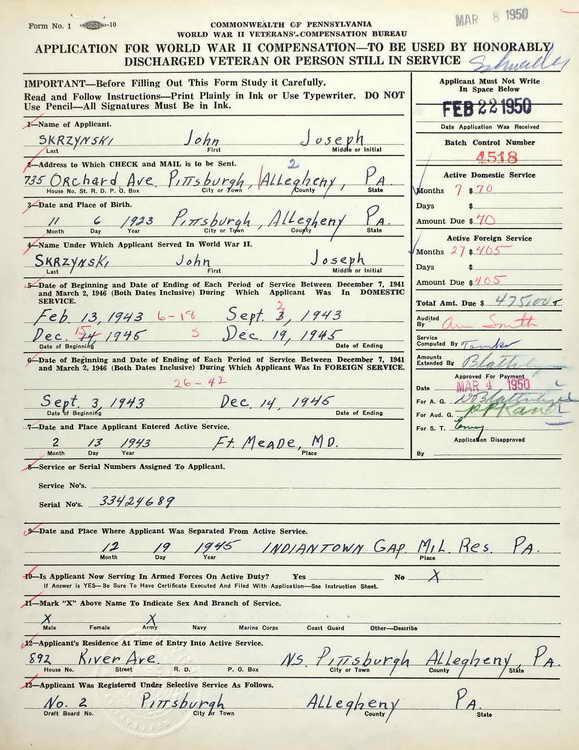 Form No. 1 10
COMMONWEALTH OF PENNSYLVANIA
WORLD WAR II VETERANS' COMPENSATION BUREAU
MAR 8 1950
APPLICATION FOR WORLD WAR II COMPENSATION—TO BE USED BY HONORABLY
DISCHARGED VETERAN OR PERSON STILL IN SERVICE
IMPORTANT—Before Filling Out This Form Study it Carefully.
Read and Follow Instructions—Print Plainly in Ink or Use Typewriter. DO NOT
Use Pencil—All Signatures Must Be in Ink.
1—Name of Applicant.
SKRZYNSKI John Joseph
Last First Middle or Initial
2—Address to Which CHECK and MAIL is to be Sent.
2
735 Orchard Ave. Pittsburgh, Allegheny, Pa.
House No. St. R. D. P. O. Box City or Town County State
3—Date and Place of Birth.
11 6 1923 Pittsburgh, Allegheny Pa.
Month Day Year City or Town County State
4—Name Under Which Applicant Served In World War II.
Skrzynski John Joseph
Last First Middle or Initial
5—Date of Beginning and Date of Ending of Each Period of Service Between December 7, 1941
and March 2, 1946 (Both Dates Inclusive) During Which Applicant Was In DOMESTIC
SERVICE.
2
Feb 13, 1943 6-18 Sept. 3, 1943
15
Dec. 14, 1945 5 Dec. 19, 1945
Date of Beginning Date of Ending
6—Date of Beginning and Date of Ending of Each Period of Service Between December 7, 1941
and March 2, 1946 (Both Dates Inclusive) During Which Applicant Was In FOREIGN SERVICE.
26-42
Sept. 3, 1943 Dec. 14, 1945
Date of Beginning Date of Ending
7—Date and Place Applicant Entered Active Service.
2 13 1943 Ft. Meade, Md.
Month Day Year Place
8—Service or Serial Numbers Assigned To Applicant.
Service No's.
Serial No's. 33424689
9—Date and Place Where Applicant Was Separated From Active Service.
12 19 1945 Indiantown Gap Mil. Res. Pa.
Month Day Year Place
10—Is Applicant Now Serving In Armed Forces On Active Duty? Yes No X
If Answer is YES—Be Sure To Have Certificate Executed And Filed With Application—See Instruction Sheet.
11—Mark "X" Above Name To Indicate Sex And Branch of Service.
X X
Male Female Army Navy Marine Corps Coast Guard Other—Describe
12—Applicant's Residence At Time of Entry Into Active Service.
892 River Ave. N.S. Pittsburgh Allegheny, Pa.
House No. Street R. D. P. O. Box City or Town County State
13—Applicant Was Registered Under Selective Service As Follows.
No. 2 Pittsburgh Allegheny Pa.
Draft Board No. City or Town County State
Applicant Must Not Write
In Space Below
FEB 22 1950
Date Application Was Received
Batch Control Number
4518
Active Domestic Service
Months 7 $ 70
Days $
Amount Due $ 70
Active Foreign Service
Months 27 $ 405
Days $
Amount Due $ 405
Total Amt. Due $ 475.00
Audited
By Ann Smith
Service
Computed By
Amounts
Extended By
Approved For Payment
Date MAR 4 1950
For A. G.
For Aud. G.
For S. T.
Application Disapproved
By